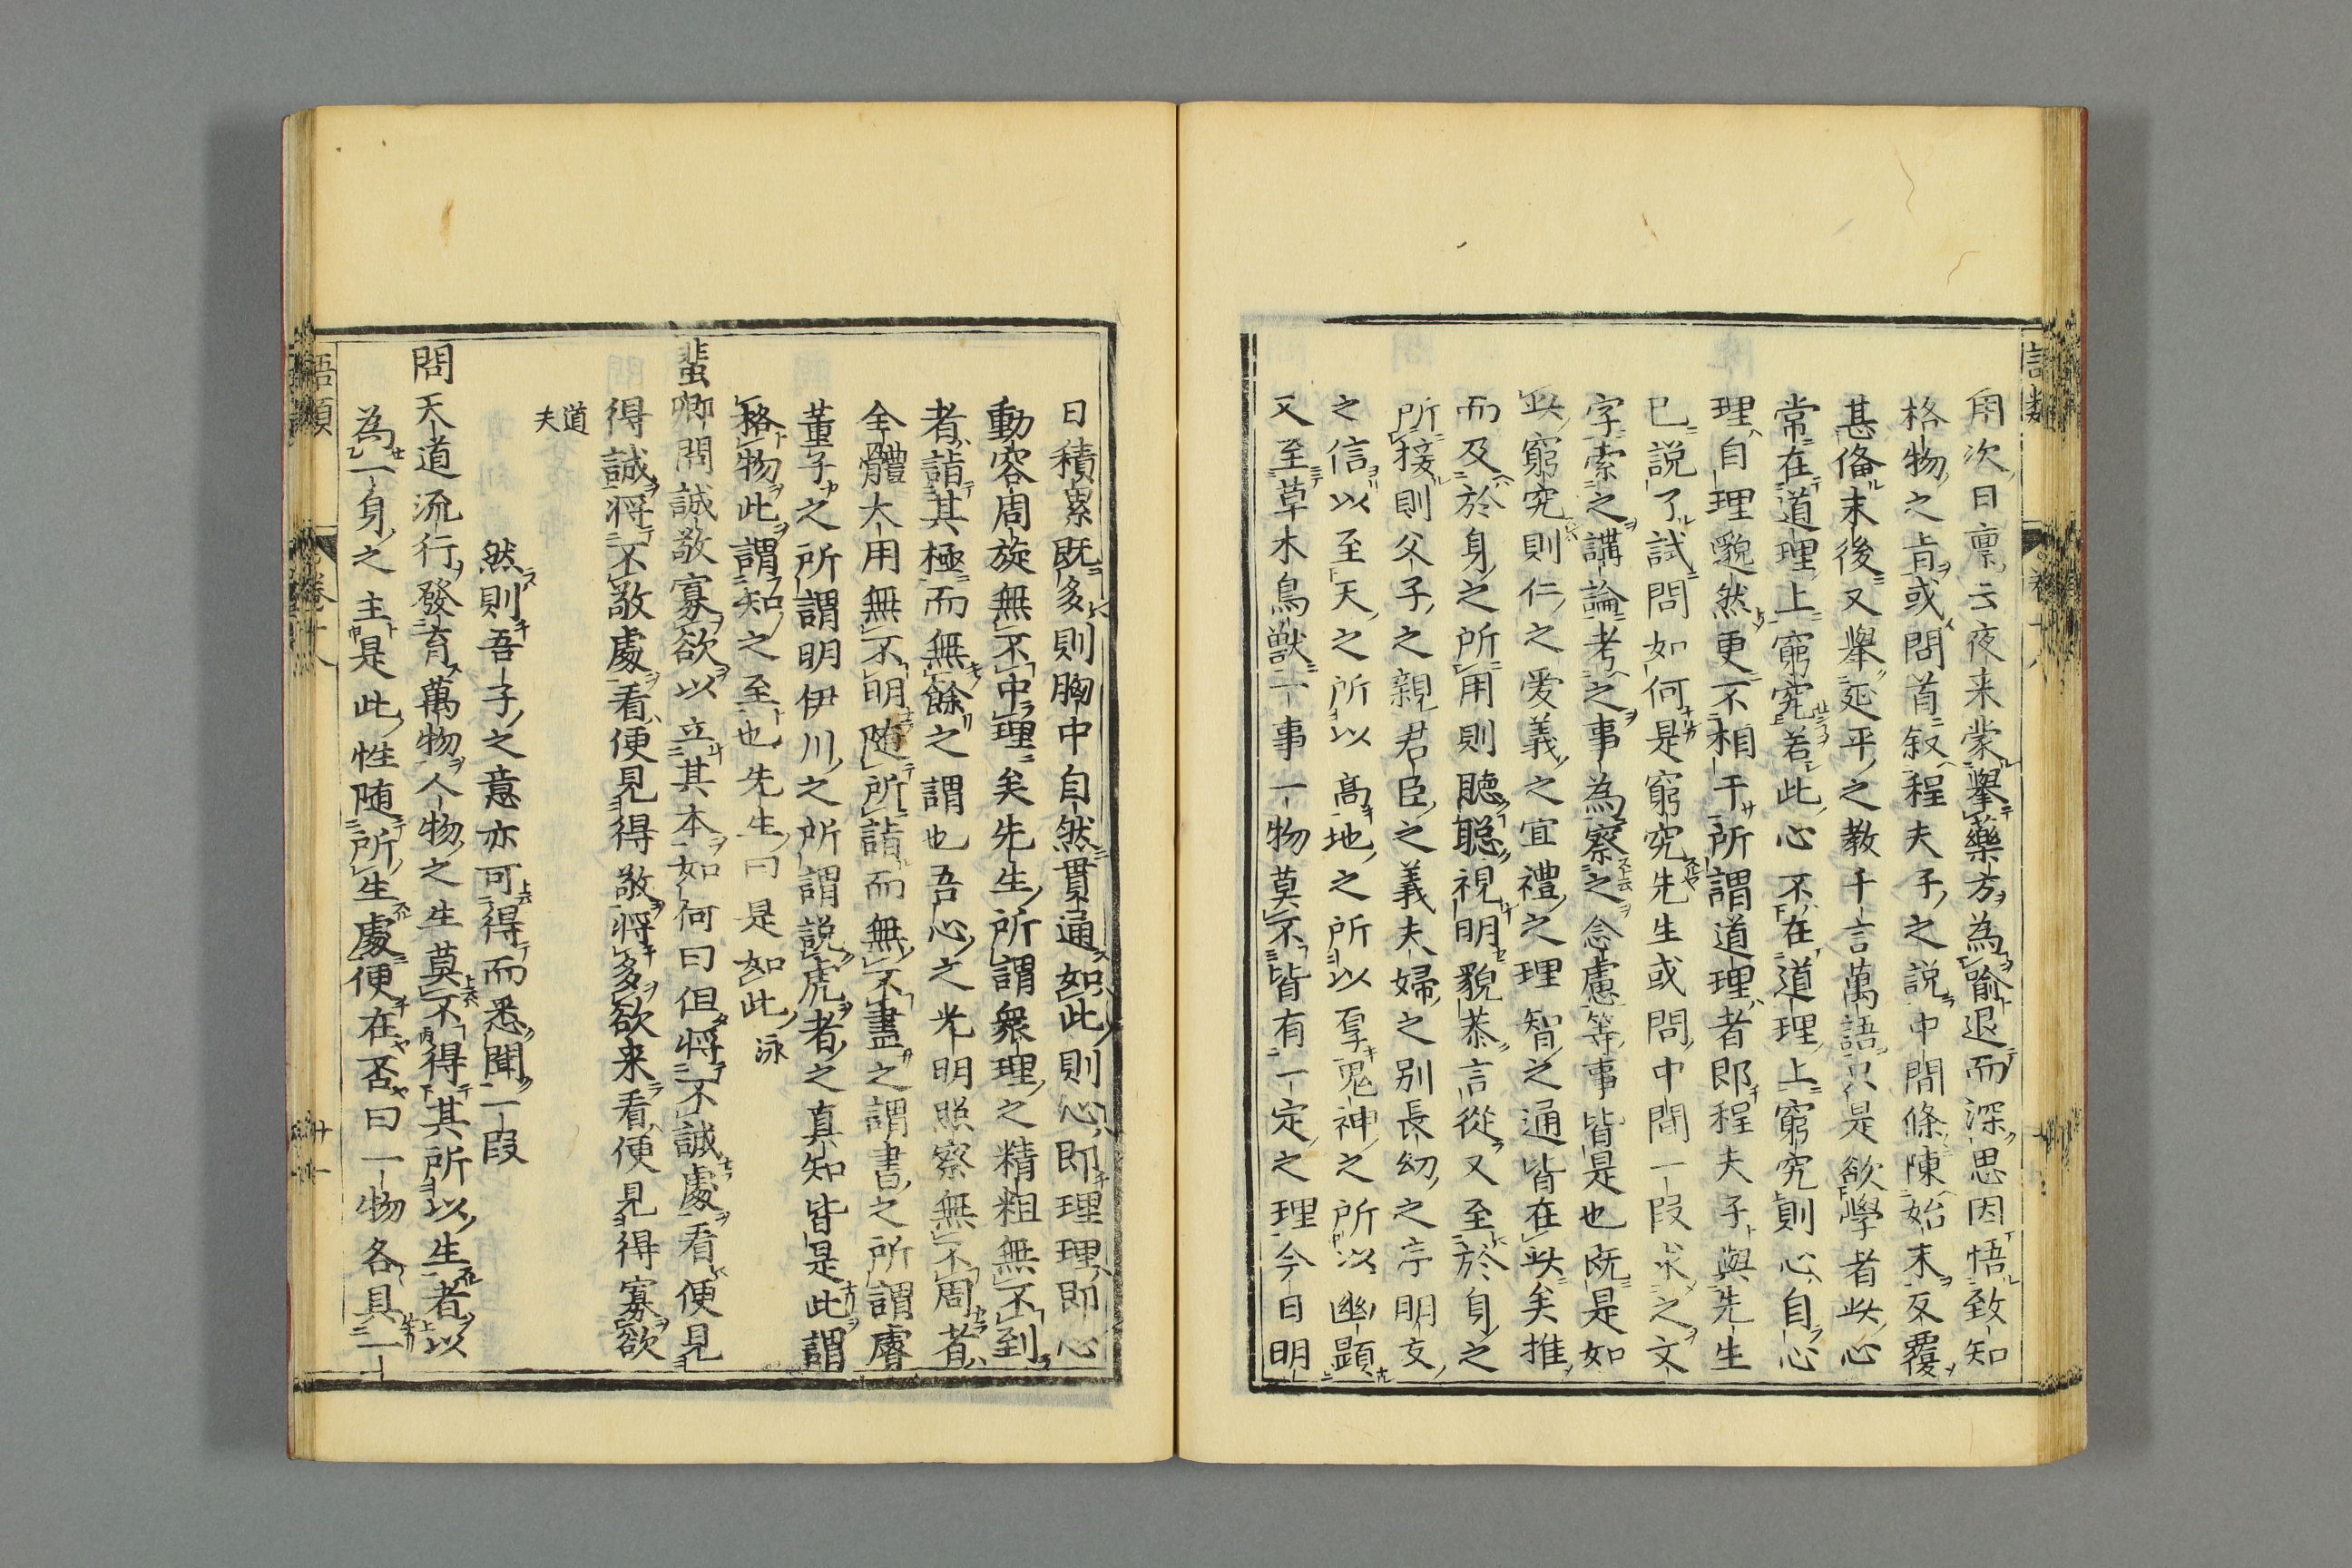 用次日稟云夜来蒙擧藥方為喻退而深思因悟致知
格物之旨或問首叙程夫子之説中間條陳始末反覆
甚俻末後又舉延平之教千言萬語只是欲學者此心
常在道理上窮究若此心不在道理上窮究則心自心
理自理邈然更不相干所謂道理者即程夫子與先生
已説了試問如何是窮究先生或問中間一段求之文
字索之講論考之事為察之念慮等事皆是也既是如
此窮究則仁之愛義之宜禮之理智之通皆在此矣推
而及於身之所用則聽聡視明貌恭言從又至於身之
所接則父子之親君臣之義夫婦之别長幼之序明友
之信以至天之所以髙地之所以厚鬼神之所以幽顕
又至草木鳥獣一事一物莫不皆有一定之理今日明
日積累既多則胸中自然貫通如此則心即理理即心
動容周旋無不中理矣先生所謂衆理之精粗無不到
者詣其極而無餘之謂也吾心之光明照察無不周者
全體大用無不明随所詣而無不盡之謂書之所謂睿
董子之所謂明伊川之所謂説虎者之真知皆是此謂
格物此謂知之至也先生曰是如此 泳
蜚卿問誠敬寡欲以立其本如何曰但将不誠處看便見
得誠将不敬處看便見得敬将多欲来看便見得寡欲
道
夫
然則吾子之意亦可得而悉聞一段
問天道流行發育萬物人物之生莫不得其所以生者以
為一身之主是此性随所生處便在否曰一物各具一
語類 卷十八 十一